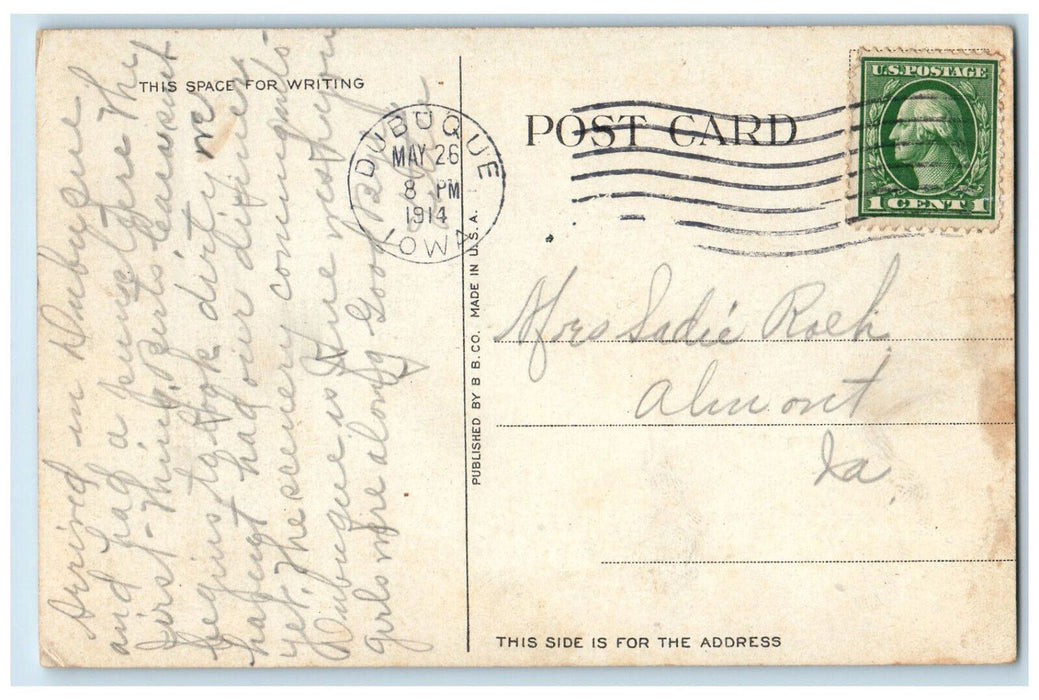 THIS SPACE FOR WRITING
Arrived in Dubuque
and had a puncture the
first thing, pirts least it
begins to look dirty we
hafent had our dinner
yet. The scenery coming into
Dubuque is fine wish you
girls were along Good Bye
DUBUQUE
MAY 26
8 PM
1914
IOWA
PUBLISHED BY B. B. CO. MADE IN U.S.A.
POST CARD
U.S. POSTAGE
1 CENT 1
Mrs Sadie Roeh
Almont
Ia
THIS SIDE IS FOR THE ADDRESS